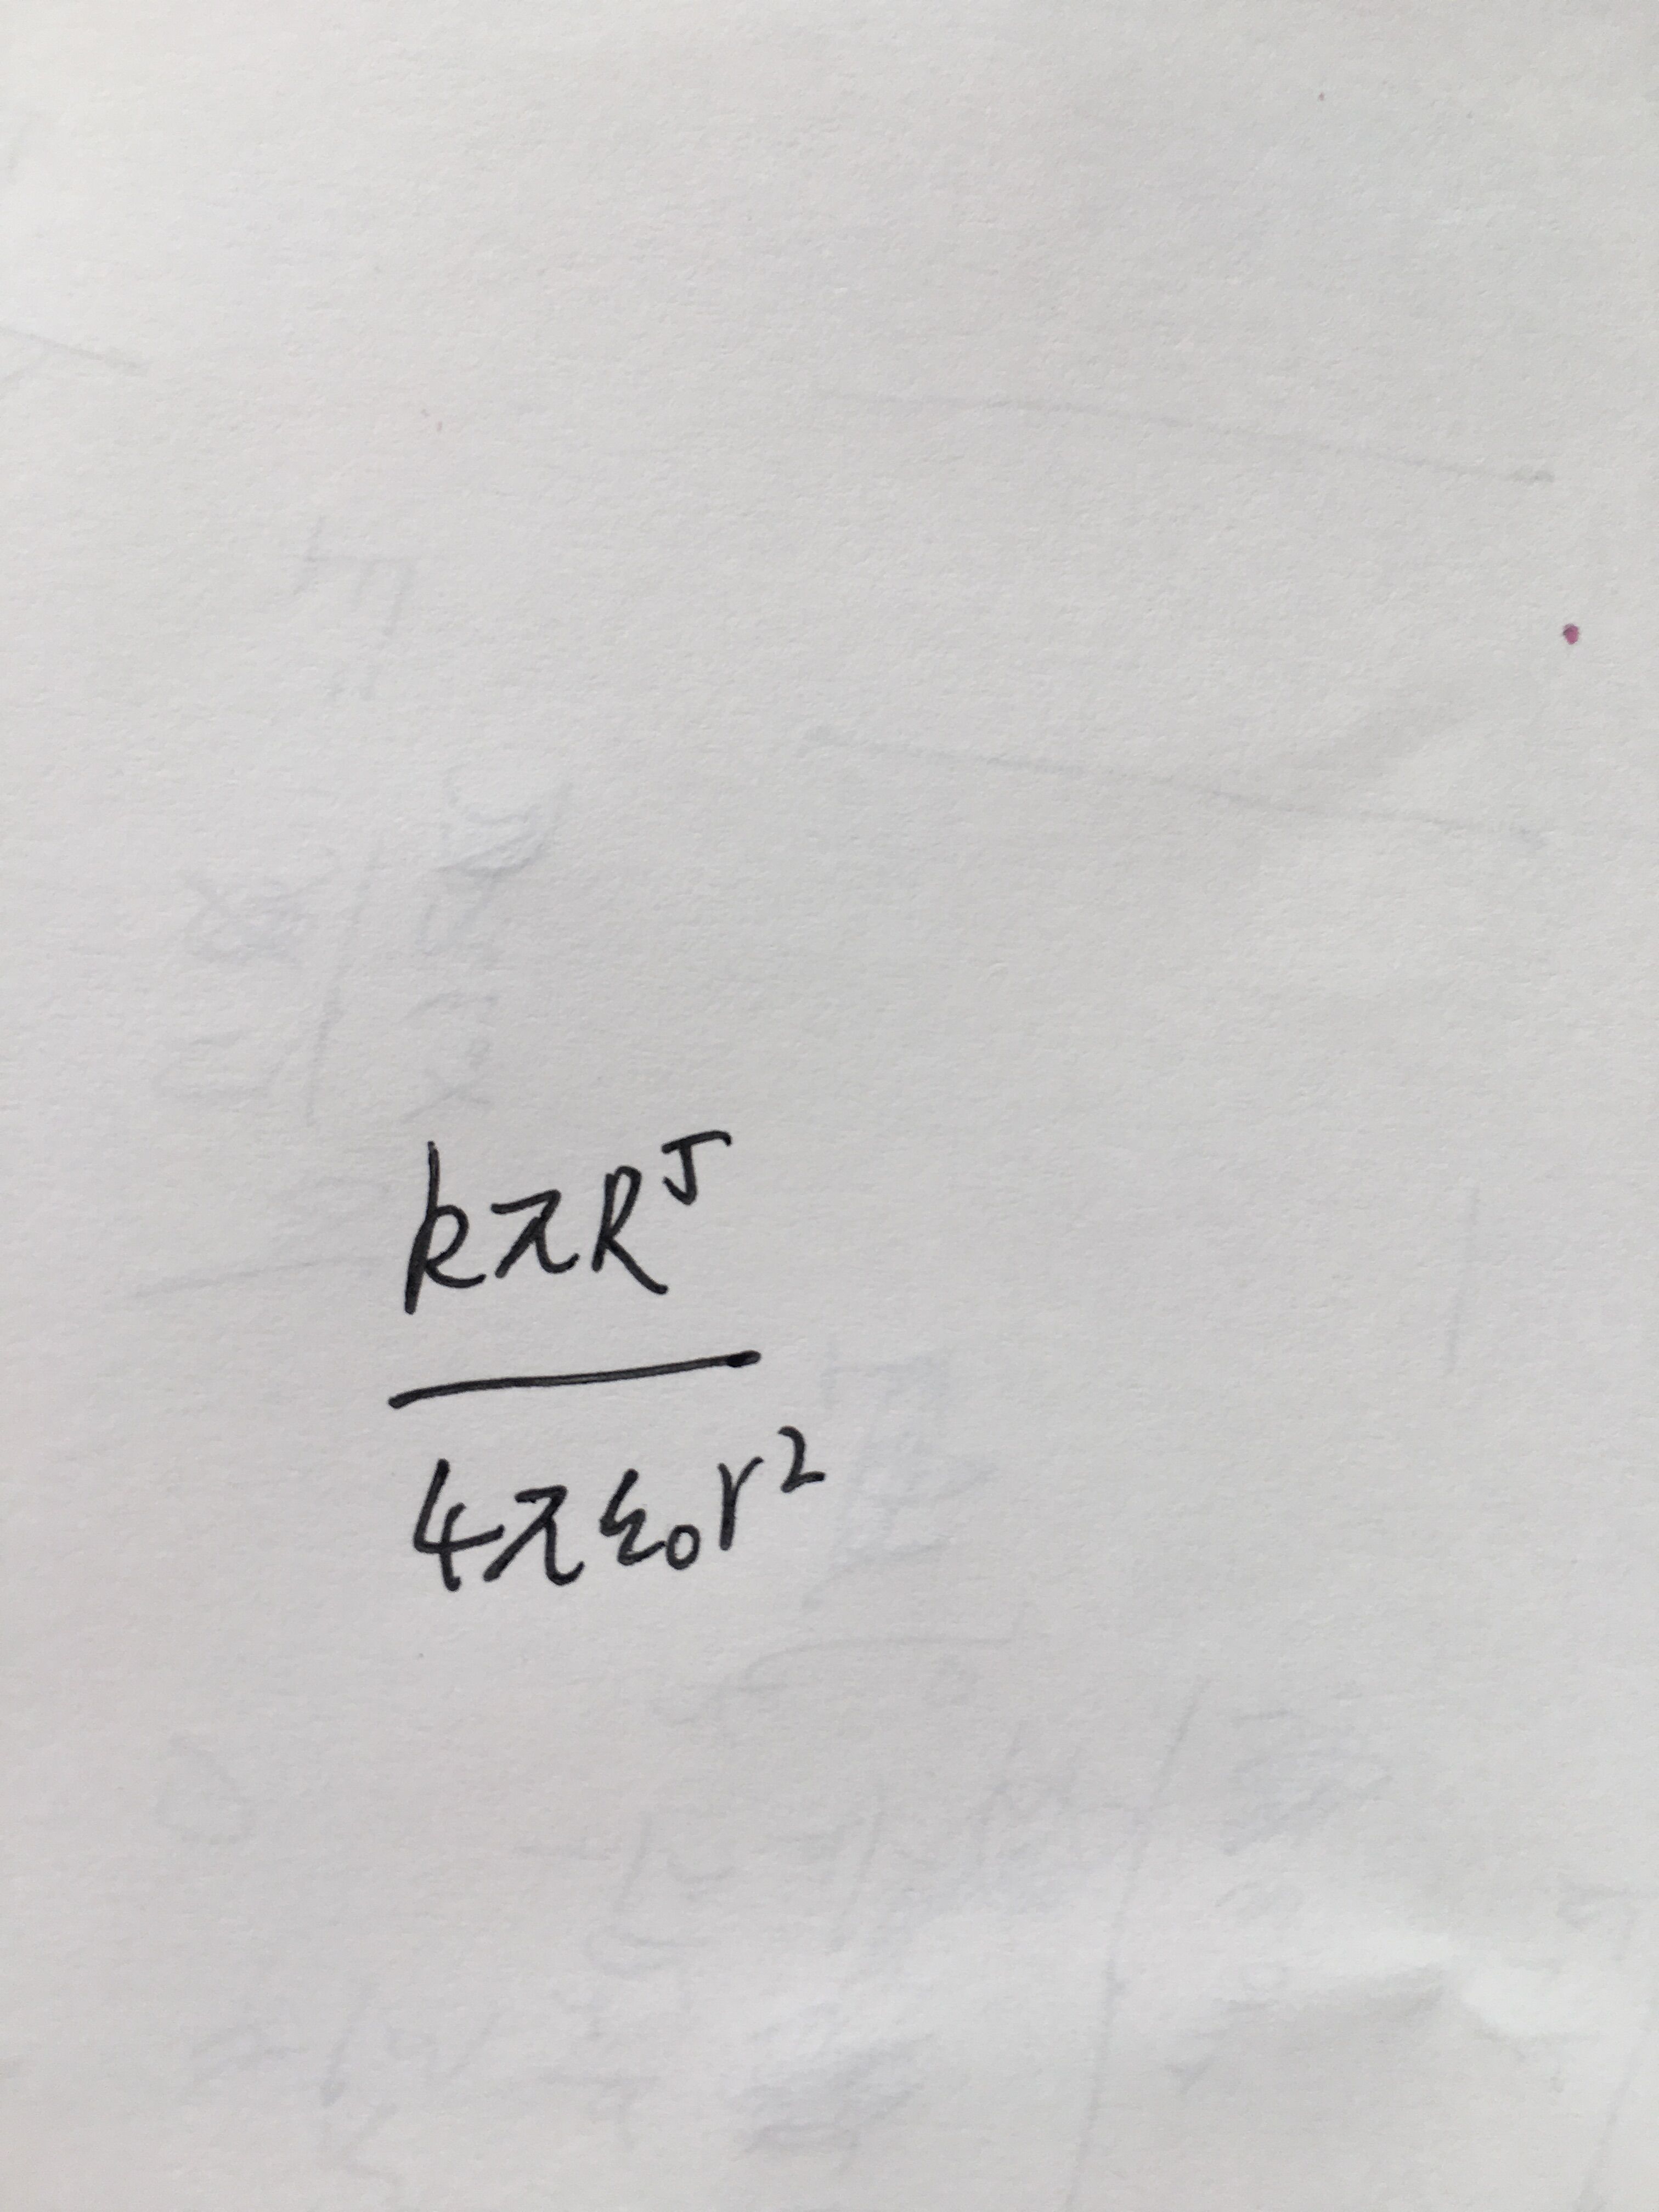 kπR^J
4πε₀r²